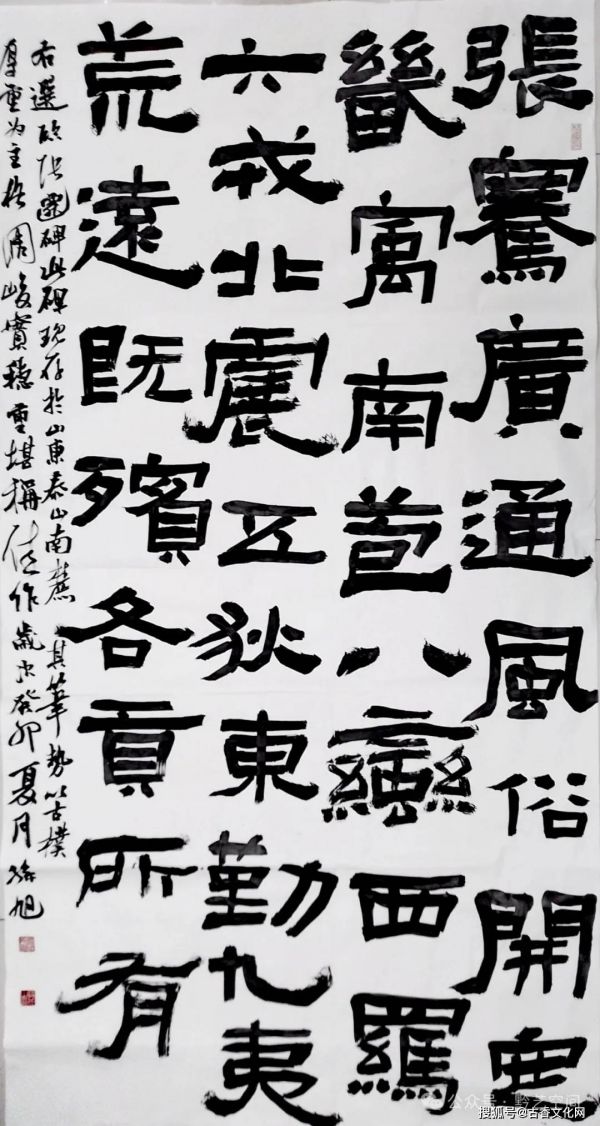 張騫廣通風俗開定
畿寓南苞八蠻西羈
六戎北震五狄東勤九夷
荒遠既殯各貢所有
右選臨張遷碑此碑現存於山東泰山南麓 其筆勢以古樸
厚重为主格調峻實穩重堪稱佳作歲次癸卯夏月 旭
公众号·黔艺空间
搜狐号@古香文化网